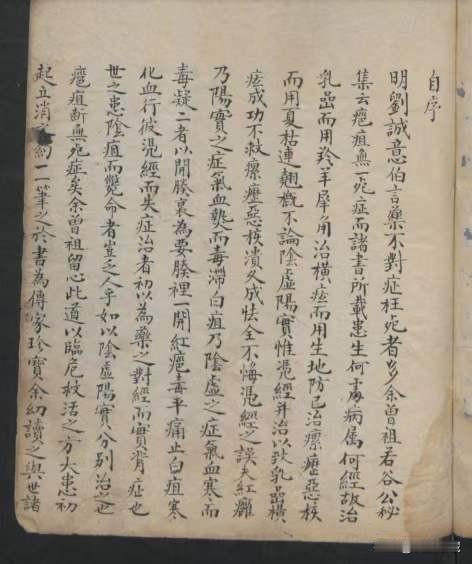 自序
明劉誠意伯言藥不對症枉死者多余曾祖若谷公秘
集云癰疽無一死症而諸書所載患生何處病属何經故治
乳喦而用羚羊犀角治橫痃而用生地防己治瘰癧惡核
而用夏枯連翹概不論陰虛陽實惟憑經并治以致乳喦橫
痃成功不救瘰癧惡核潰久成怯全不悔憑經之誤夫紅癰
乃陽實之症氣血熱而毒滯白疽乃陰虛之症氣血寒而
毒凝二者以開腠裏為要腠裡一開紅癰毒平痛止白疽寒
化血行彼憑經而失症治者初以為藥之對經而實背症也
世之患陰疽而斃命者豈乏人乎如以陰虛陽實分別治之世
癰疽斷無死症矣余曾祖留心此道以臨危救活之方大患初
起立消約一一筆之於書為傳家珍寶余幼讀之與世諸